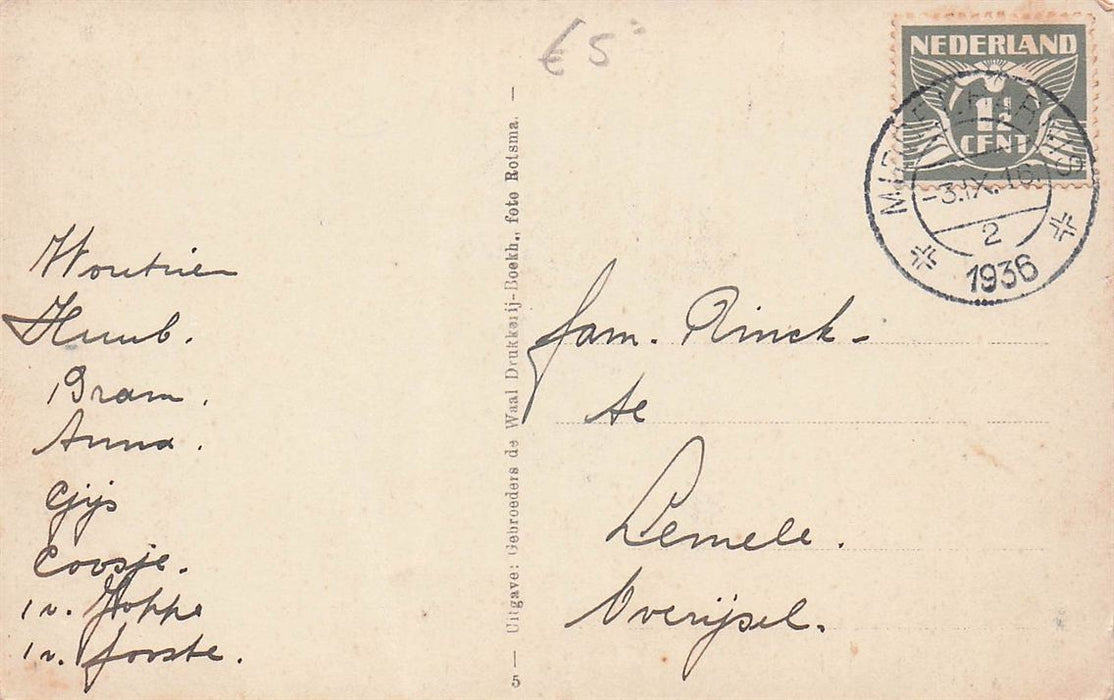 € 5
NEDERLAND
1½
CENT
-3.IX.16.
2
1936
Woutrien
Huub.
Bram.
Anna.
Gijs
Coosje.
v. Hoppe
v. Jooste.
5 — Uitgave: Gebroeders de Waal Drukkerij-Boekh., foto Rotsma. —
fam. Rinck-
te
Lemele.
Overijsel.